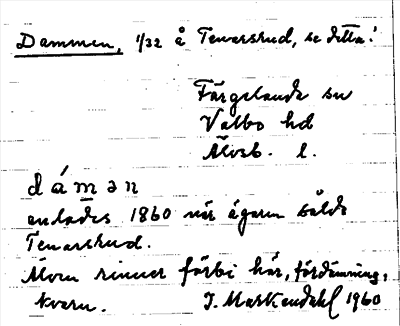 Dammen, 1/32 å Tenarsrud, se detta!
Färgelanda sn
Valbo hd
Älvsb. l.
dámǝn
anlades 1860 när ägaren sålde
Tenarsrud.
Älven rinner förbi här, fördämning,
kvarn. J. Markendahl 1960